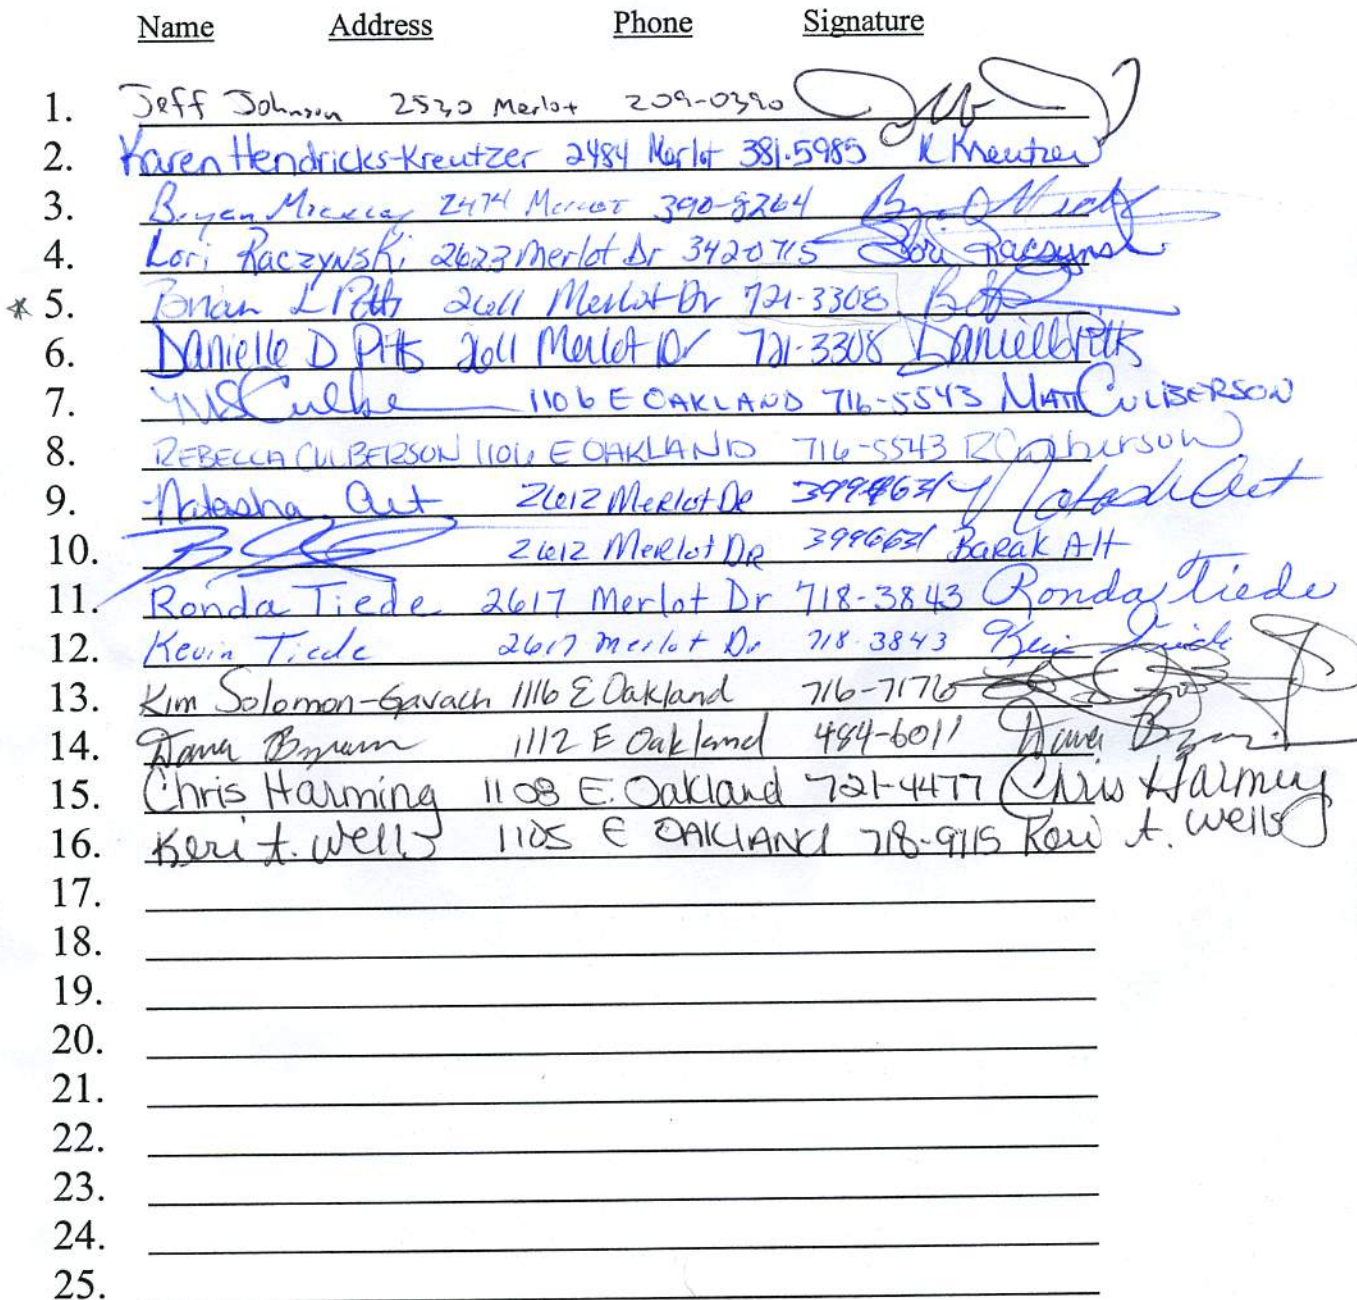 Name Address Phone Signature
1. Jeff Johnson 2530 Merlot 209-0390
2. Karen Hendricks-Kreutzer 2484 Merlot 381-5985 K Kreutzer
3. Bryan 2474 Merlot 390-8264
4. Lori Raczynski 2623 Merlot Dr 3420715 Lori Raczynski
* 5. Brian L Pitts 2611 Merlot Dr 721-3308
6. Danielle D Pitts 2611 Merlot Dr 721-3308 Danielle Pitts
7. 1106 E OAKLAND 716-5543 MATT CULBERSON
8. REBECCA CULBERSON 1106 E OAKLAND 716-5543 R Culberson
9. Natasha Alt 2612 Merlot DR 3996631 Natasha Alt
10. 2612 Merlot DR 3996631 BARAK Alt
11. Ronda Tiede 2617 Merlot Dr 718-3843 Ronda Tiede
12. Kevin Tiede 2617 Merlot Dr 718-3843 Kevin Tiede
13. Kim Solomon-Gavach 1116 E Oakland 716-7176
14. Dawn Bynum 1112 E Oakland 484-6011 Dawn Bynum
15. Chris Harming 1108 E. Oakland 721-4477 Chris Harming
16. Keri A. Wells 1105 E OAKLAND 718-9115 Keri A. Wells
17.
18.
19.
20.
21.
22.
23.
24.
25.